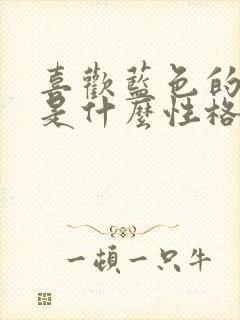 喜歡藍色的
是什麼性格
一頓一只牛